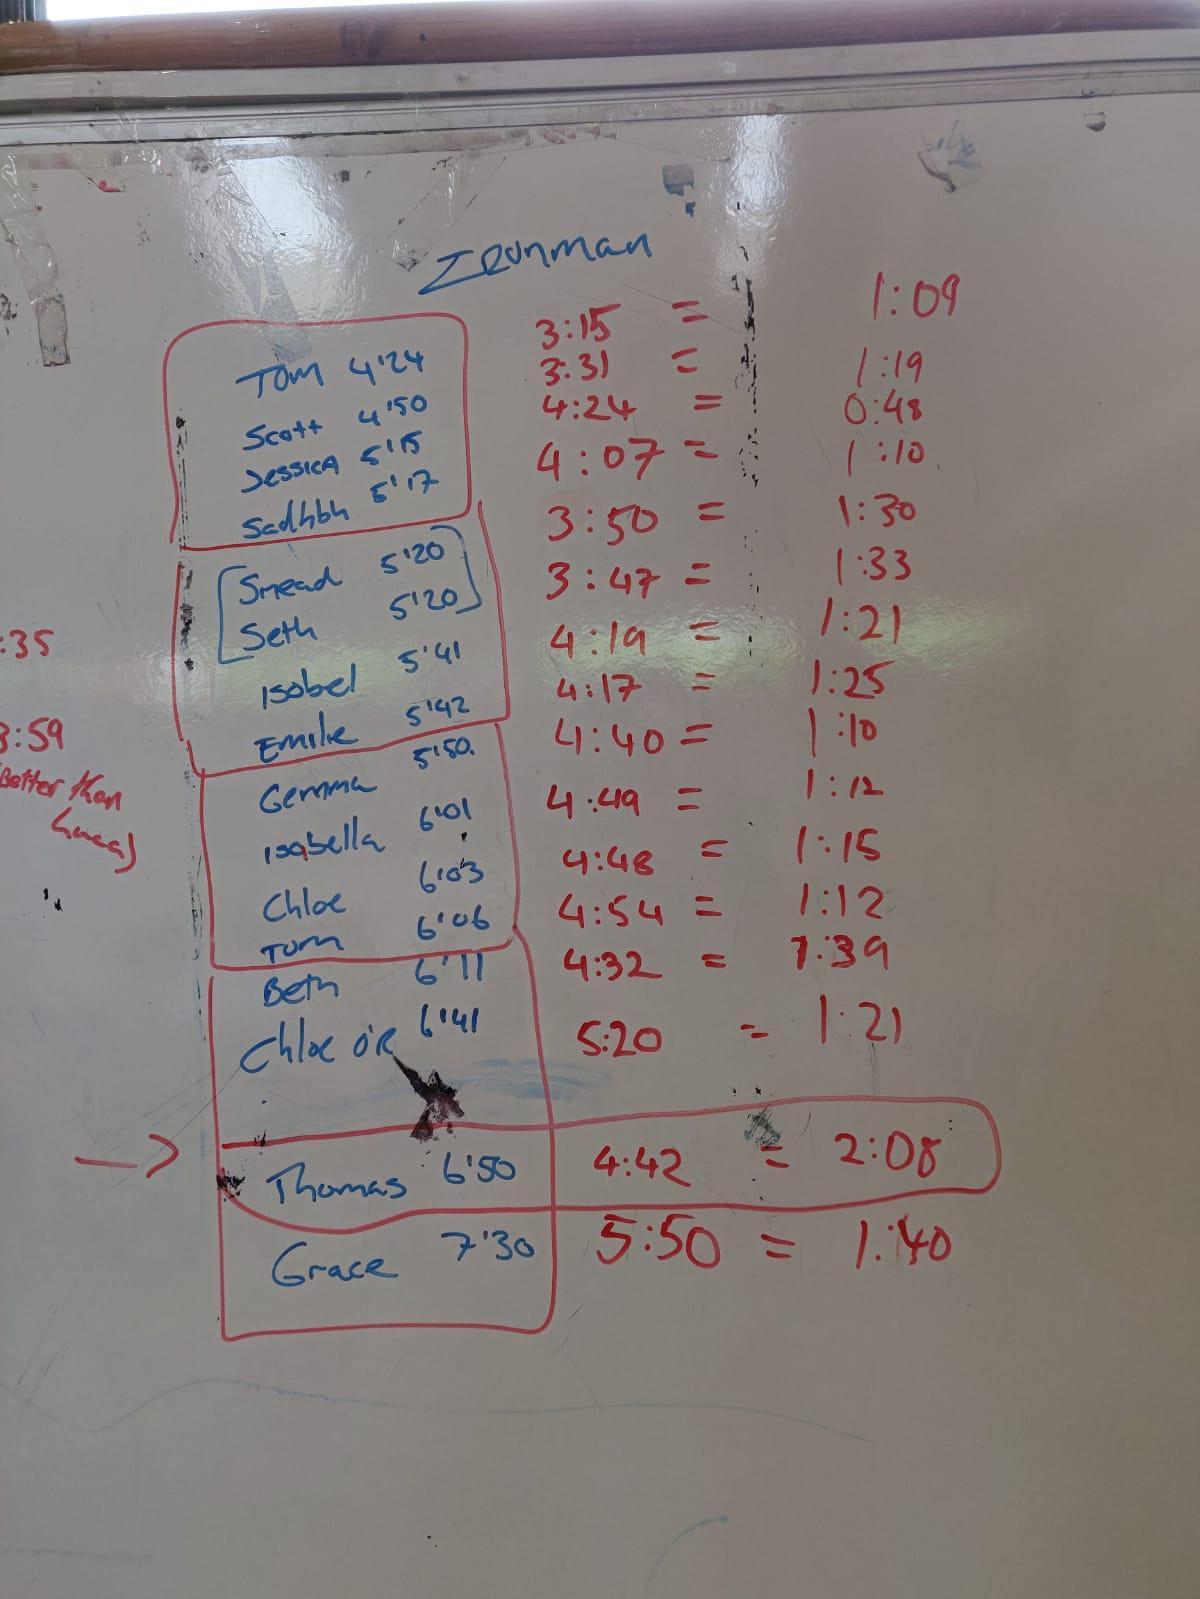 Ironman
Tom 4'24 3:15 = 1:09
Scott 4'50 3:31 = 1:19
Jessica 5'15 4:24 = 0:48
Sadhbh 5'17 4:07 = 1:10
Smead 5'20 3:50 = 1:30
Seth 5'20 3:47 = 1:33
:35
Isobel 5'41 4:19 = 1:21
Emilie 5'42 4:17 = 1:25
3:59
Gemma 5'50. 4:40 = 1:10
(Better than
Isabella 6'01 4:49 = 1:12
Chloe 6'03 4:48 = 1:15
Tom 6'06 4:54 = 1:12
Beth 6'11 4:32 = 1:39
Chloe O'R 6'41 5:20 = 1:21
Thomas 6'50 4:42 = 2:08
Grace 7'30 5:50 = 1:40